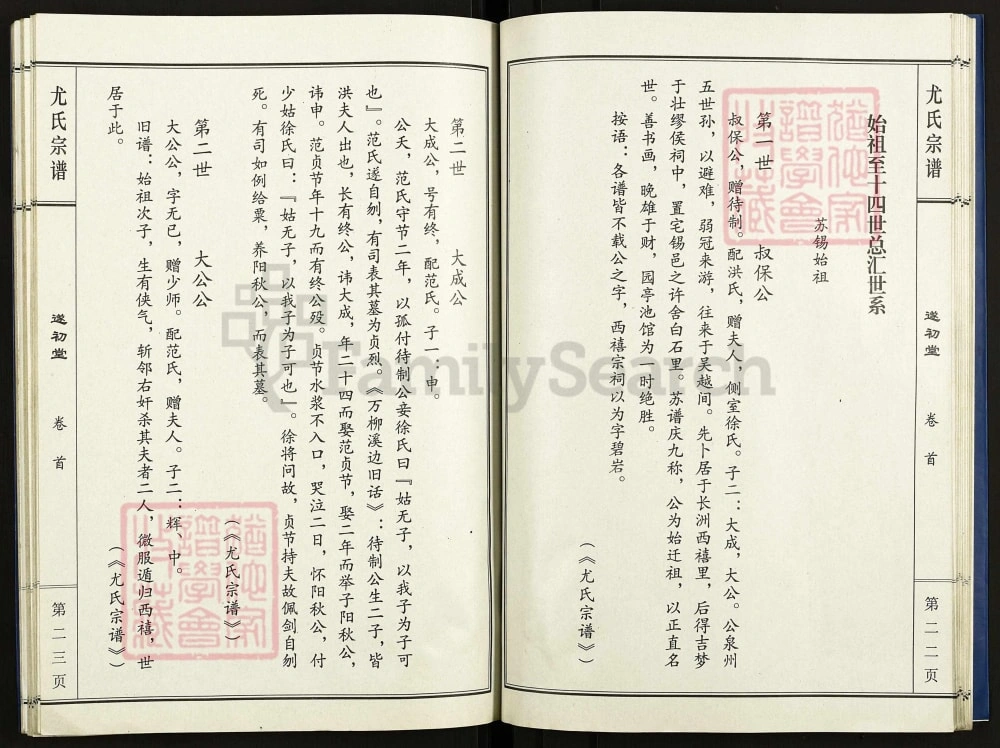 尤氏宗谱
遂初堂
卷首
第二二页
始祖至十四世总汇世系
苏锡始祖
第一世 叔保公
叔保公，赠待制。配洪氏，赠夫人，侧室徐氏。子二：大成，大公。公泉州
五世孙，以避难，弱冠来游，往来于吴越间。先卜居于长洲西禧里，后得吉梦
于壮缪侯祠中，置宅锡邑之许舍白石里。苏谱庆九称，公为始迁祖，以正直名
世。善书画，晚雄于财，园亭池馆为一时绝胜。
按语：各谱皆不载公之字，西禧宗祠以为字碧岩。
（《尤氏宗谱》）
第二世 大成公
大成公，号有终，配范氏。子一：申。
公夭，范氏守节二年，以孤付待制公妾徐氏曰『姑无子，以我子为子可
也』。范氏遂自刎，有司表其墓为贞烈。《万柳溪边旧话》：待制公生二子，皆
洪夫人出也，长有终公，讳大成，年二十四而娶范贞节，娶二年而举子阳秋公，
讳申。范贞节年十九而有终公殁。贞节水浆不入口，哭泣二日，怀阳秋公，付
少姑徐氏曰：『姑无子，以我子为子可也』。徐将问故，贞节持夫故佩剑自刎
死。有司如例给粟，养阳秋公，而表其墓。
（《尤氏宗谱》）
第二世 大公公
大公公，字无已，赠少师。配范氏，赠夫人。子二：辉、中。
旧谱：始祖次子，生有侠气，斩邻右奸杀其夫者二人，微服遁归西禧，世
居于此。
（《尤氏宗谱》）
尤氏宗谱
遂初堂
卷首
第二三页
FamilySearch